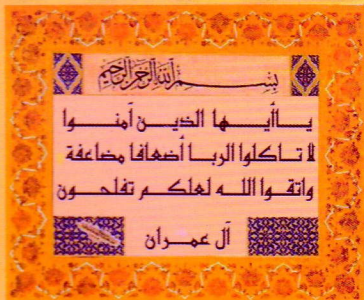 بسم الله الرحمن الرحيم
يا أيها الذين آمنوا
لا تاكلوا الربا أضعافا مضاعفة
واتقوا الله لعلكم تفلحون
آل عمران